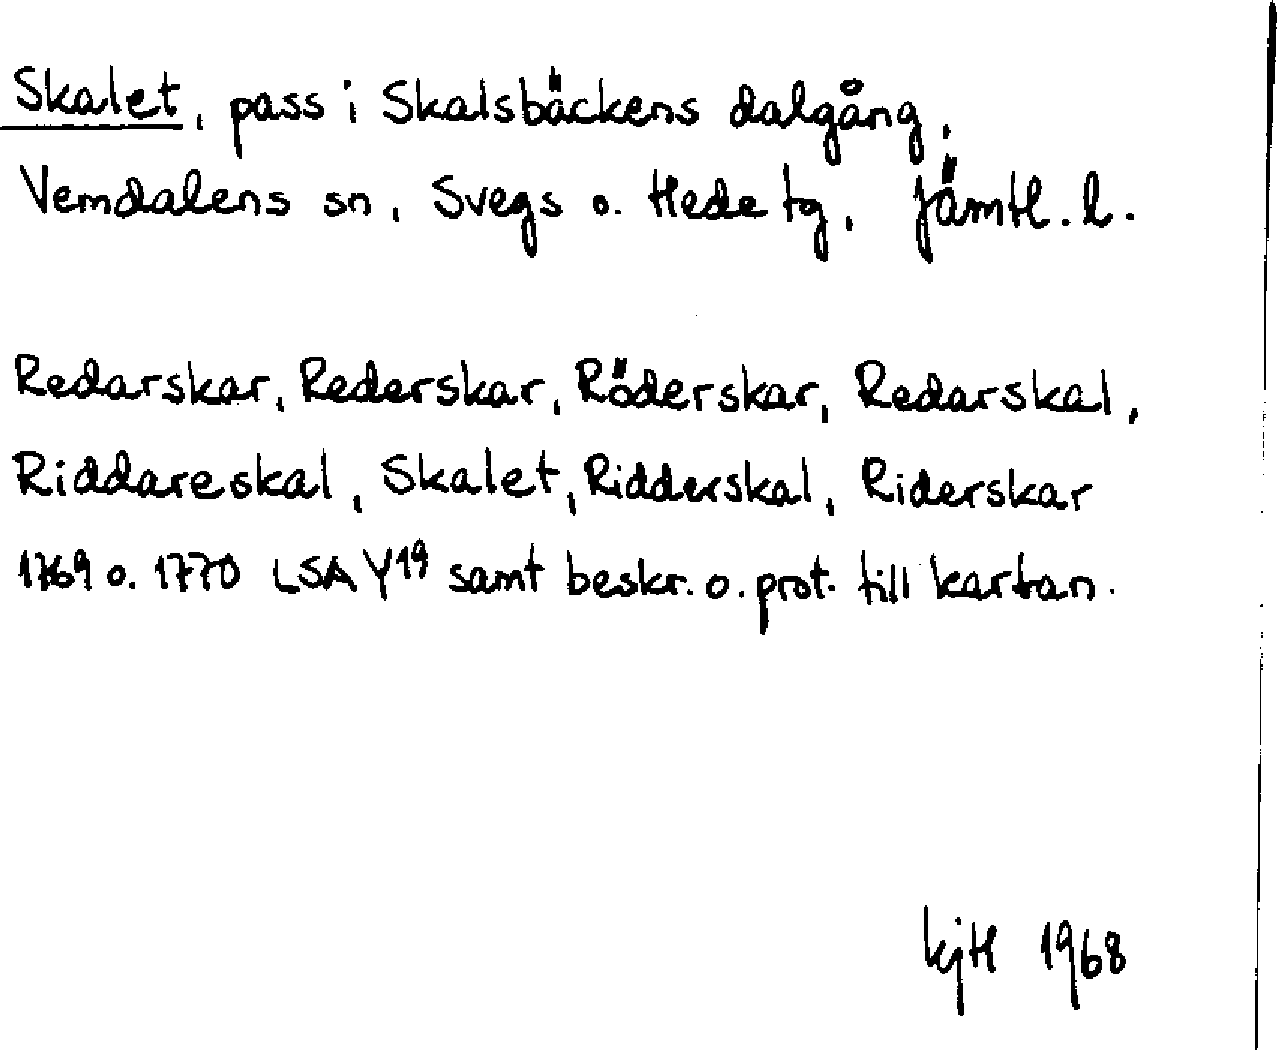 Skalet, pass i Skalsbäckens dalgång,
Vemdalens sn, Svegs o. Hede tg, Jämtl. l.
Redarskar, Rederskar, Röderskar, Redarskal,
Riddareskal, Skalet, Ridderskal, Riderskar
1769 o. 1770 LSA Y19 samt beskr. o. prot. till kartan.
kjH 1968